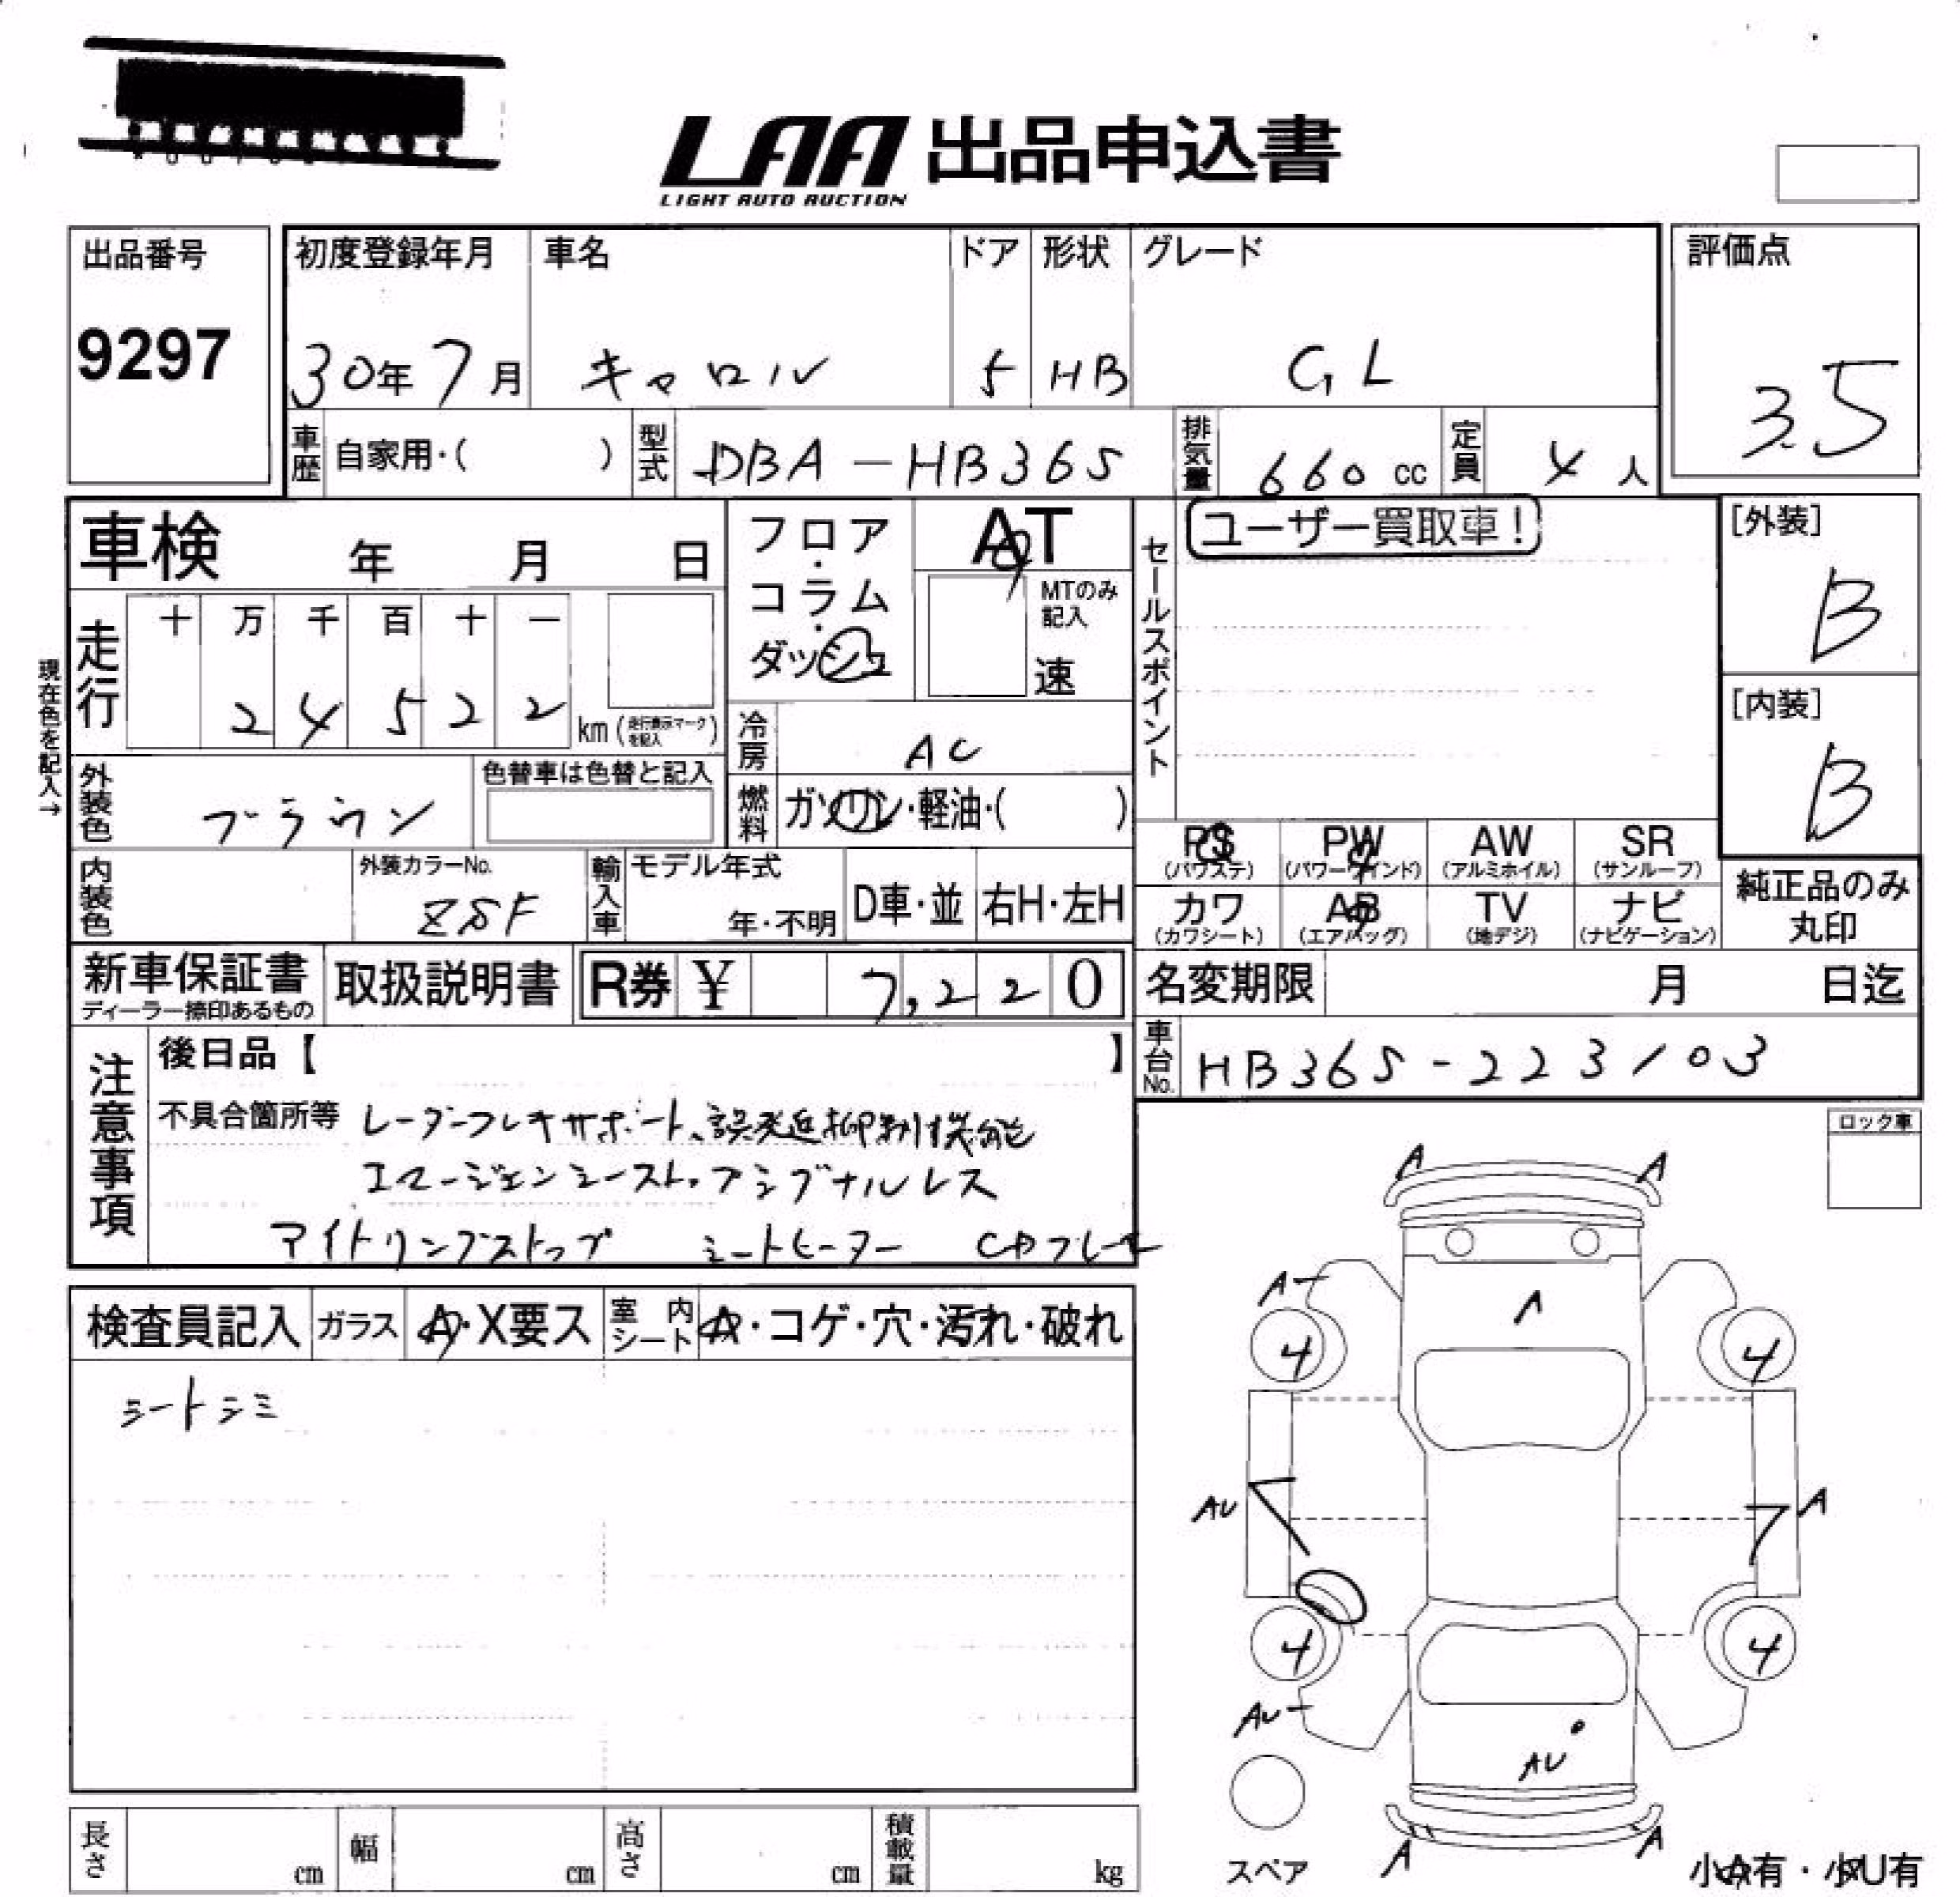 LAA 出品申込書
LIGHT AUTO AUCTION
出品番号
9297
初度登録年月
30年7月
車名
キャロル
ドア
5
形状
HB
グレード
GL
評価点
3.5
車歴 自家用・( )
型式 DBA-HB36S
排気量 660cc
定員 4人
車検 年 月 日
フロア・コラム・ダッシュ
AT
MTのみ記入
速
セールスポイント
ユーザー買取車!
[外装]
B
[内装]
B
現在色を記入→
走行
十 万 千 百 十 一
2 4 5 2 2 km (走行表示マークを記入)
冷房 AC
外装色 ブラウン
色替車は色替と記入
燃料 ガソリン・軽油・( )
PS (パワステ)
PW (パワーウインド)
AW (アルミホイル)
SR (サンルーフ)
カワ (カワシート)
AB (エアバッグ)
TV (地デジ)
ナビ (ナビゲーション)
純正品のみ丸印
内装色
外装カラーNo.
Z5F
輸入車
モデル年式
年・不明
D車・並
右H・左H
新車保証書
ディーラー捺印あるもの
取扱説明書
R券 ¥ 7,220
名変期限 月 日迄
車台No. HB36S-223103
注意事項
後日品【 】
不具合箇所等 レーダーブレーキサポート、誤発進抑制機能
エマージェンシーストップシグナルレス
アイドリングストップ シートヒーター CDプレーヤー
ロック車
検査員記入
ガラス
A・X要ス
室内シート
A・コゲ・穴・汚れ・破れ
シートシミ
A A
A
A
4 4
AU A
4 4
AU
AU
A A
スペア
小A有・小U有
長さ cm
幅 cm
高さ cm
積載量 kg